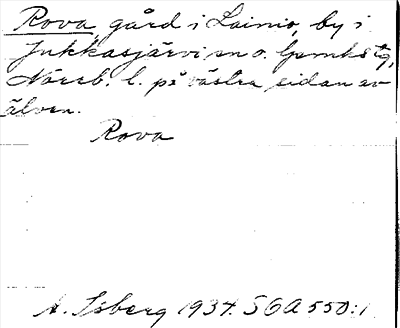 Rova gård i Lainio, by i
Jukkasjärvi sn o. tg,
Norrb. l. på västra sidan av
älven.
Rova
A. Isberg 1934. SOA 550:1